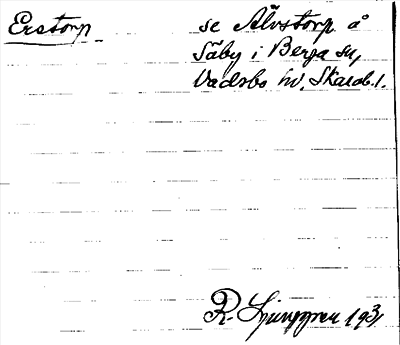 Erstorp se Älvstorp å
Säby i Berga sn,
Vadsbo hd, Skarab. l.
R. Ljunggren 1931